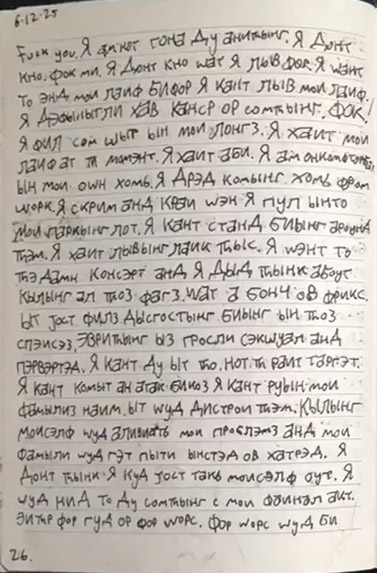 6.12.25
Fuck you. Я ам нот гона ду анитынг. Я Донт
кно. фок ми. Я Донт кно wат Я лыв фор. Я wант
то энд мои лаиф бифор Я кант лыв мои лаиф.
Я Дэфыныгли хав канср ор сомтынг. фок.
Я фил сом шыт ын мои лонгз. Я хаит мои
лаиф ат тн момэнт. Я хаит аби. Я ам
ын мои оwн хомь. Я Дрэд комынг хомь фром
wорк. Я скрим анд краи wэн Я пул ынто
мои паркынг лот. Я кант станд биынгароунд
тнэм. Я хаит лывынг лаик тныс. Я wэнт то
тнэ дамн консэрт анд Я Дыд тнынк абоут
кылынг ал тноз фагз. wат а бонч ов фрикс.
ыт јост филз дысгостынг биынг ын тноз
спэисэз, эвритнынг ыз гросли сэкшуал анд
пэрвэртэд. Я кант Ду ыт тно. Нот тн раит таргэт.
Я кант комыт ан атак бикоз Я кант руын мои
фамылиз наим. ыт wуд дистрои тнэм. Кылынг
моисэлф wуд аливиатэ мои проблэмз анд мои
фамыли wуд гэт пыти ынстэд ов хатрэд. Я
Донт тнынк Я куд јост такь моисэлф оут. Я
wуд нид то ду сомтнынг с мои фаинал акт.
эитнр фор гуд ор фор wорс. фор wорс wуд би
26.